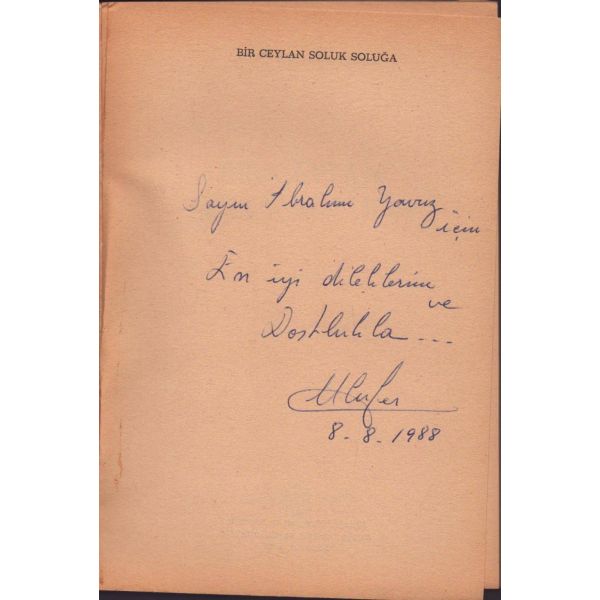 BİR CEYLAN SOLUK SOLUĞA
Sayın İbrahim Yavuz
için
En iyi dileklerim
ve
Dostlukla ...
8-8.1988